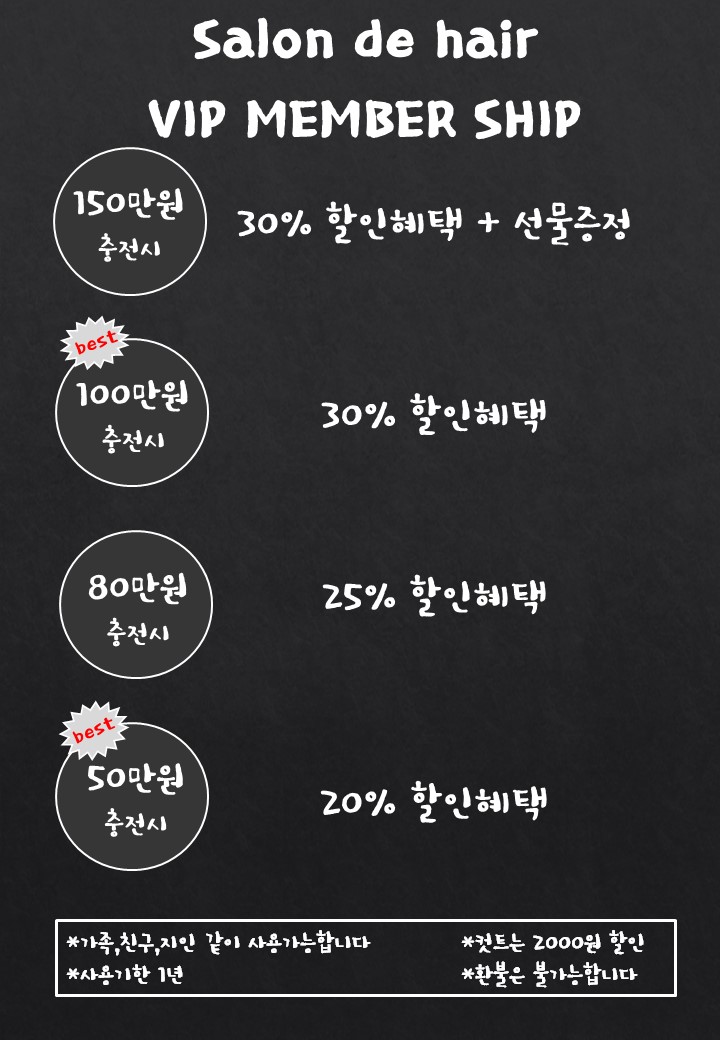 Salon de hair
VIP MEMBER SHIP
150만원
충전시
30% 할인혜택 + 선물증정
best
100만원
충전시
30% 할인혜택
80만원
충전시
25% 할인혜택
best
50만원
충전시
20% 할인혜택
*가족,친구,지인 같이 사용가능합니다
*컷트는 2000원 할인
*사용기한 1년
*환불은 불가능합니다